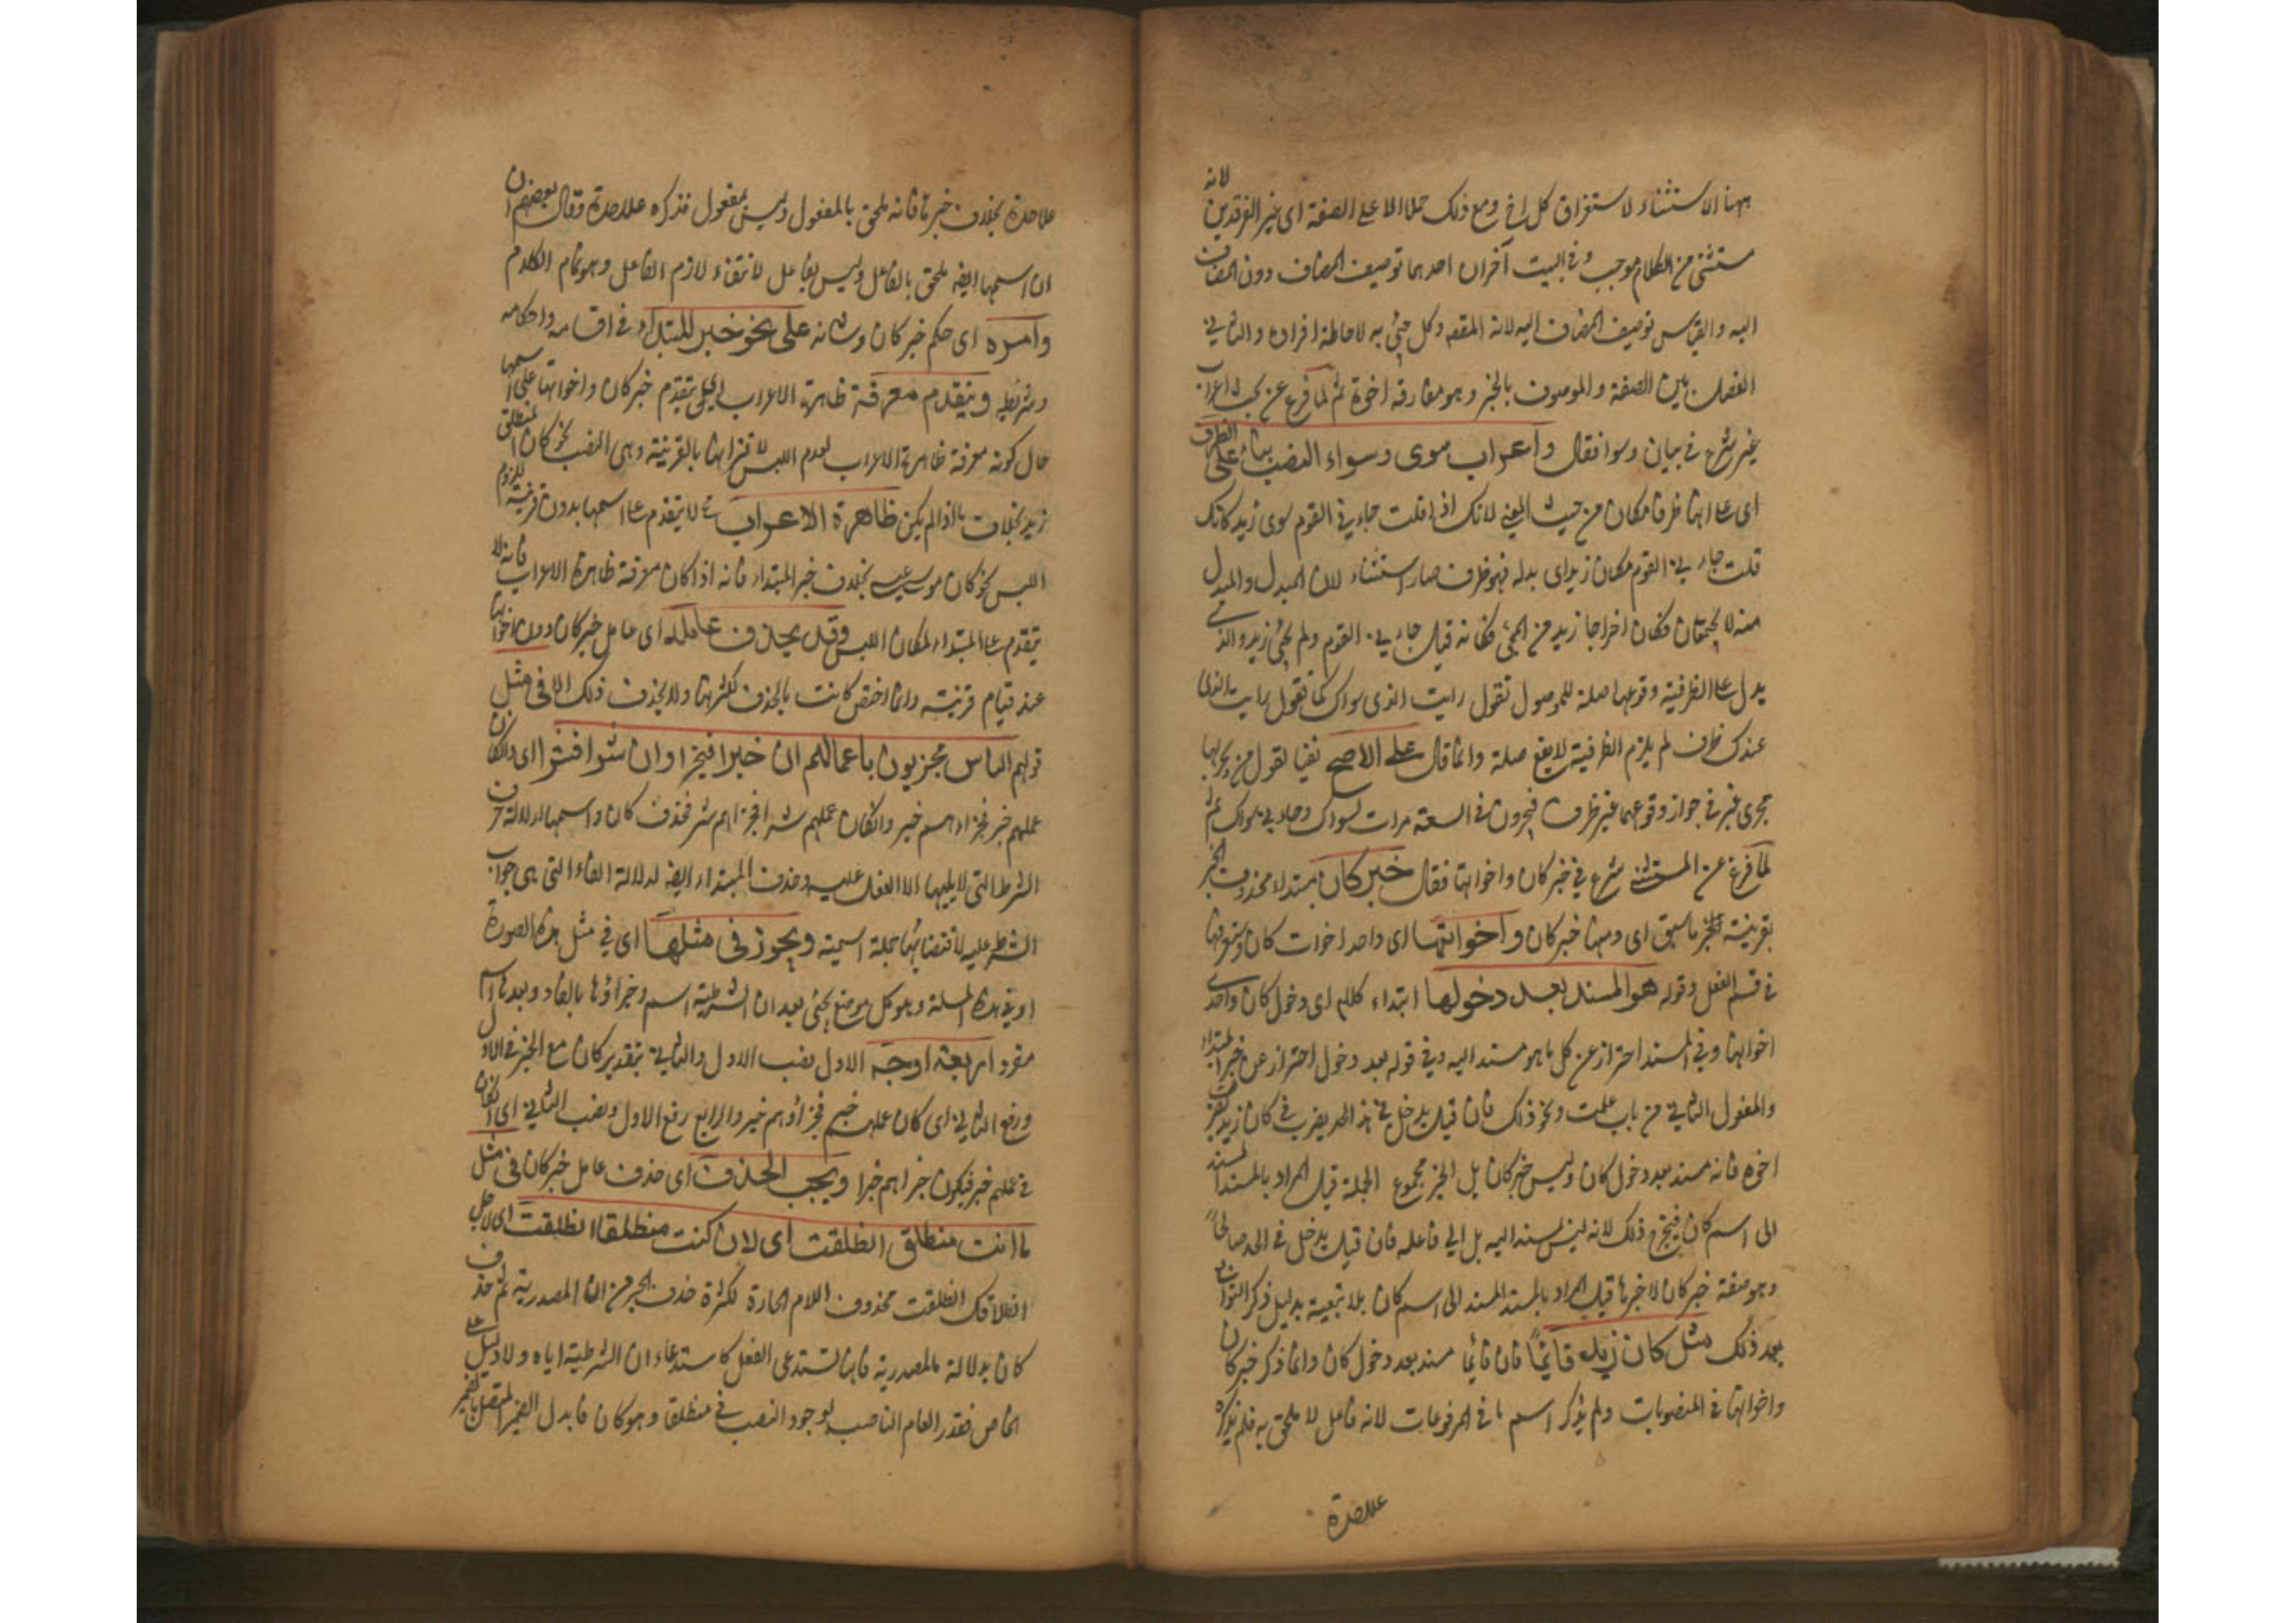 ههنا الاستثناء لاستغراق كل اخ ومع ذلك حمل الا على الصفة اى غير الفرقدين لانه
مستثنى من الكلام موجب وفي البيت آخران احدهما توصيف المضاف دون المضاف
اليه والقياس توصيف المضاف اليه لانه المقصد وكل جيئ به لاحاطة افراده والثاني
الفصل بين الصفة والموصوف بالخبر وهو مفارقه اخوه ثم لما فرغ عن بحث اعراب
غير شرع في بيان وسوا فقال واعراب سوى وسواء النصب بناء على الظرف
اى على انها ظرف مكان من حيث المعنى لانك اذا قلت جاءني القوم سوى زيد كانك
قلت جاءني القوم مكان زيد اى بدله فهو ظرف صار استثناء لان المبدل والمبدل
منه لا يجتمعان فكان اخراجا زيد من المجئ فكانه قيل جاءني القوم ولم يجئ زيد والذي
يدل على الظرفية وقوعها صلة للموصول تقول رايت الذى سواك كما تقول رايت الذى
عندك فلو لم يلزم الظرفية لا يقع صلة وانما قال على الاصح نفيا لقول من يجريها
مجرى غير في جواز وقوعهما غير ظرف فيجرون في السعة مررت بسواك وجاءني سواك ثم
لما فرغ عن المستثنى شرع في خبر كان واخواتها فقال خبر كان مبتداء محذوف الخبر
بقرينة ما سبق اى ومنها خبر كان واخواتها اى واحد اخوات كان وستعرفها
في قسم الفعل وقوله هو المسند بعد دخولها ابتداء كلام اى دخول كان واحدى
اخواتها وفي المسند احتراز عن كل ما هو مسند اليه وفي قوله بعد دخول احتراز عن خبر المبتداء
والمفعول الثاني من باب علمت ونحو ذلك فان قيل يدخل في هذا الحد يضرب في كان زيد يضرب
اخوه فانه مسند بعد دخول كان وليس خبر كان بل الخبر مجموع الجملة قيل المراد بالمسند المسند
الى اسم كان فيخرج ذلك لانه ليس مسند اليه بل الى فاعله فان قيل يدخل في الحد صالحا
وهو صفة خبر كان لا خبرها قيل المراد بالمسند المسند الى اسم كان بلا تبعية بدليل ذكر التوابع
بعد ذلك مثل كان زيد قائما فان قائما مسند بعد دخول كان وانما ذكر خبر كان
واخواتها في المنصوبات ولم يذكر اسمها في المرفوعات لانه فاعل لا ملحق به فلم يذكره
علاحدة
علاحدة بخلاف خبرها فانه ملحق بالمفعول وليس بمفعول فذكره علاحدة وقال بعضهم ان
ان اسمها ايضه ملحق بالفاعل وليس بفاعل لانتفاء لازم الفاعل وهو تمام الكلام
وامره اى حكم خبر كان وشانه على نحو خبر المبتداء في اقسامه واحكامه
وشرايطه ويتقدم معرفة ظاهرة الاعراب اى يتقدم خبر كان واخواتها على اسمها
حال كونه معرفة ظاهرة الاعراب لعدم اللبس لاقترانها بالقرينة وهي النصب نحو كان المنطلق
زيد بخلاف ما اذا لم يكن ظاهرة الاعراب لا يتقدم على اسمها بدون قرينة للزوم
اللبس نحو كان موسى عيسى بخلاف خبر المبتداء فانه اذا كان معرفة ظاهرة الاعراب فانه لا
يتقدم على المبتداء لمكان اللبس وقد يحذف عامله اى عامل خبر كان دون اخواتها
عند قيام قرينة وانما اختص كانت بالحذف لكثرتها ولا يحذف ذلك الا في مثل
قولهم الناس مجزيون باعمالهم ان خيرا فخير وان شرا فشر اى ان كان
عملهم خير فجزاءهم خير وان كان عملهم شرا فجزاءهم شر فحذف كان واسمها لدلالة حرف
الشرط التي لا يليها الا الفعل عليه وحذف المبتداء ايضه لدلالة الفاء التي هي جواب
الشرط عليه لاقتضائها جملة اسمية ويجوز في مثلها اى في مثل هذه الصورة
او في هذه المسئلة وهو كل موضع يجئ بعد ان الشرطية اسم وجزاؤها بالفاء وبعدها اسم
مفرد اربعة اوجه الاول نصب الاول والثاني بتقدير كان مع الخبر في الاول
ورفع الثاني اى كان عملهم خير فجزاؤهم خير والرابع رفع الاول ونصب الثاني اى ان كان
في عملهم خير فيكون جزاءهم خيرا ويجب الحذف اى حذف عامل خبر كان في مثل
اما انت منطلق انطلقت اى لان كنت منطلقا انطلقت اى لاجل
انطلاقك انطلقت محذوف اللام الجارة لكثرة حذف الجر من ان المصدرية ثم حذف
كان بدلالة ما المصدرية فانها تستدعى الفعل كاستدعاء ان الشرطية اياه ولا دليل على
الخاص فقدر العام الناصب لوجود النصب في منطلقا وهو كان فابدل الضمير المتصل بالضمير